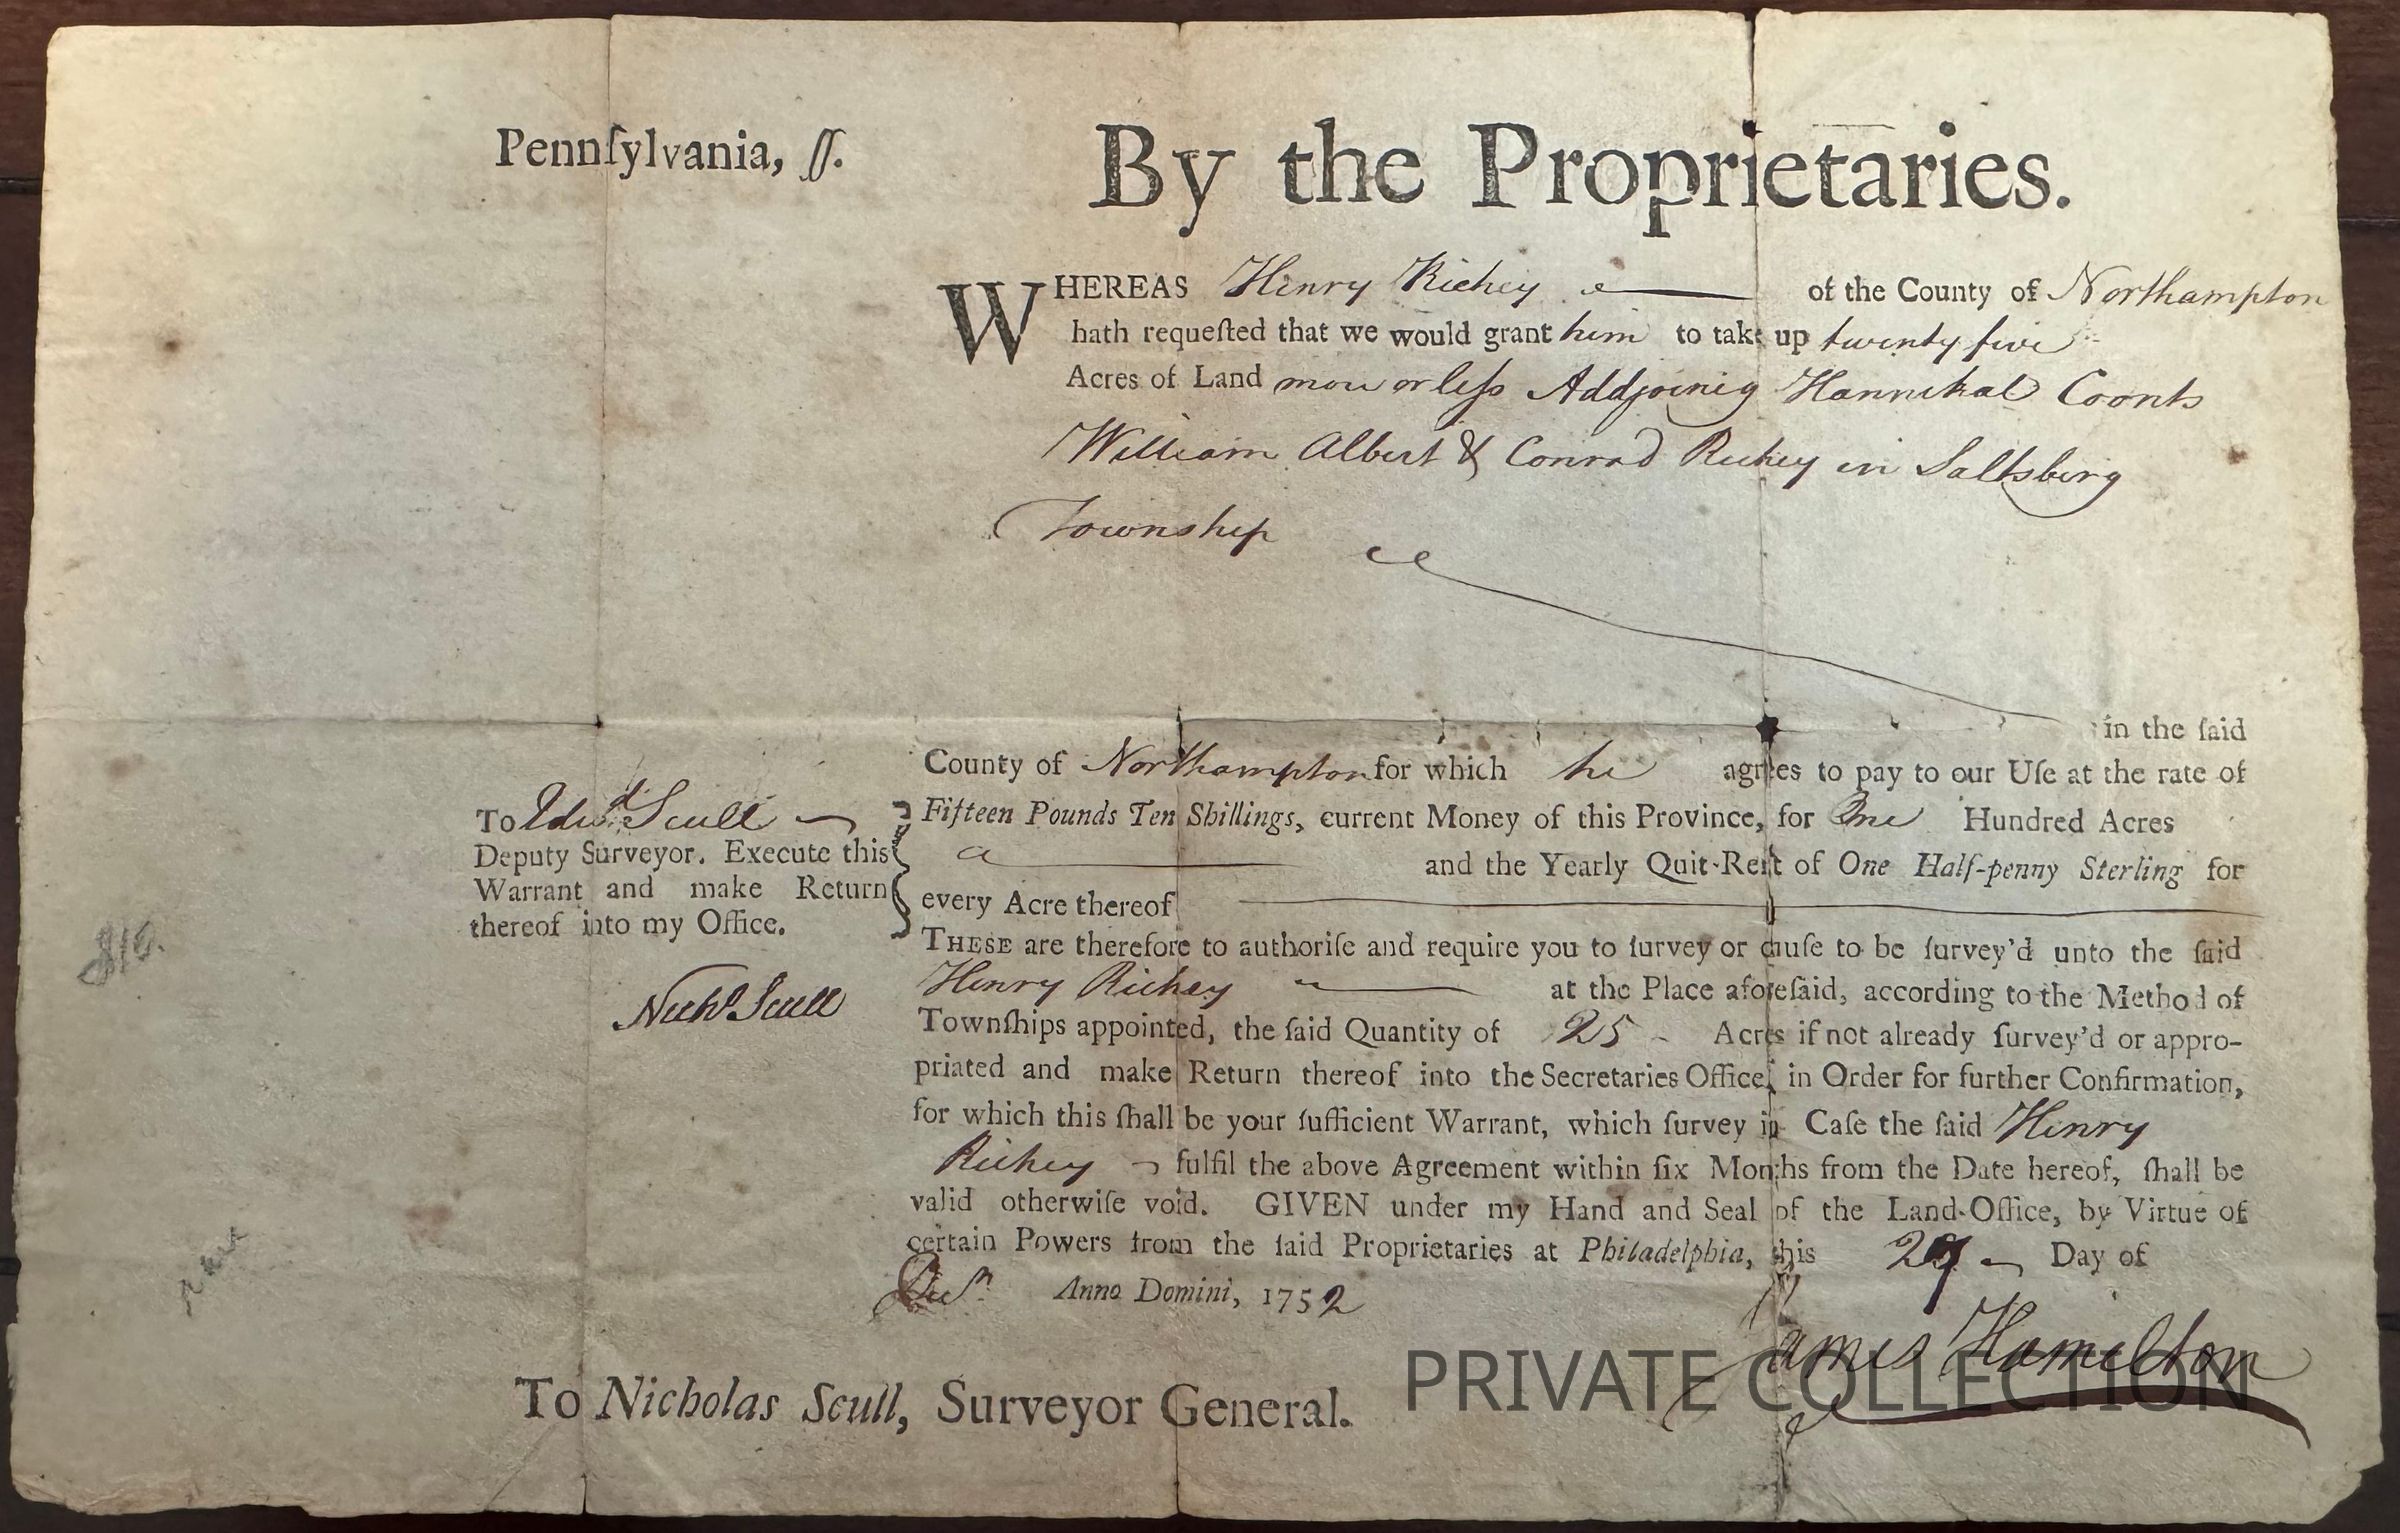 Pennſylvania, ſſ.
By the Proprietaries.
WHEREAS Henry Richey of the County of Northampton
hath requeſted that we would grant him to take up twenty five
Acres of Land more or leſs Addjoinig Hannibal Coonts
William Albert & Conrad Richey in Saltsberg
Township
in the ſaid
County of Northampton for which he agrees to pay to our Uſe at the rate of
Fifteen Pounds Ten Shillings, current Money of this Province, for One Hundred Acres
and the Yearly Quit-Rent of One Half-penny Sterling for
every Acre thereof
THESE are therefore to authoriſe and require you to ſurvey or cauſe to be ſurvey'd unto the ſaid
Henry Richey at the Place aforeſaid, according to the Method of
Townſhips appointed, the ſaid Quantity of 25 Acres if not already ſurvey'd or appro-
priated and make Return thereof into the Secretaries Office, in Order for further Confirmation,
for which this ſhall be your ſufficient Warrant, which ſurvey in Caſe the ſaid Henry
Richey fulfil the above Agreement within ſix Months from the Date hereof, ſhall be
valid otherwiſe void. GIVEN under my Hand and Seal of the Land-Office, by Virtue of
certain Powers from the ſaid Proprietaries at Philadelphia, this Day of
Anno Domini, 1752
James Hamilton
To Edwd. Scull
Deputy Surveyor. Execute this
Warrant and make Return
thereof into my Office.
Nichs Scull
To Nicholas Scull, Surveyor General.
PRIVATE COLLECTION